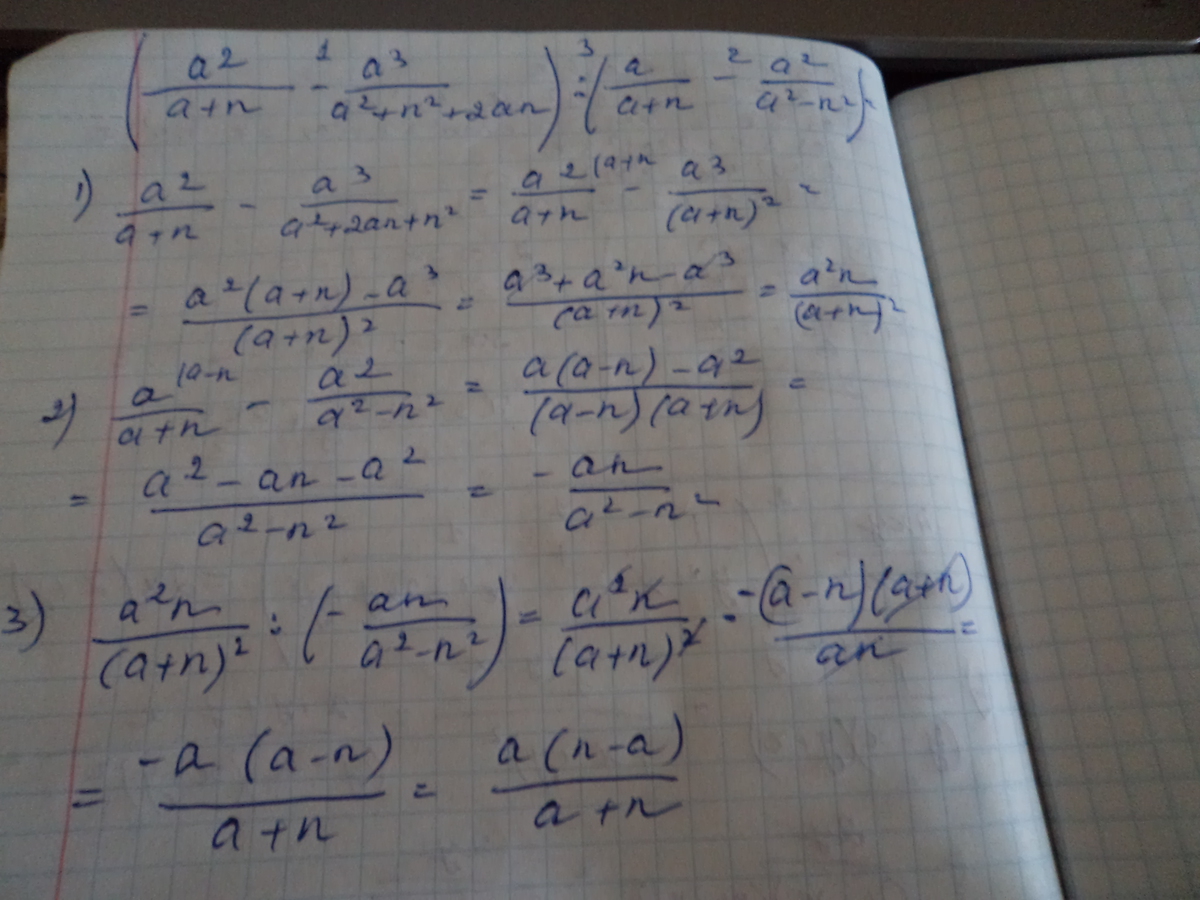 (a²/(a+n) -¹ a³/(a²+n²+2an)) :³ (a/(a+n) -² a²/(a²-n²)) =
1) a²/(a+n) - a³/(a²+2an+n²) = a²⁽ᵃ⁺ⁿ/(a+n) - a³/(a+n)² =
= (a²(a+n)-a³)/(a+n)² = (a³+a²n-a³)/(a+n)² = a²n/(a+n)²
2) a⁽ᵃ⁻ⁿ/(a+n) - a²/(a²-n²) = (a(a-n)-a²)/((a-n)(a+n)) =
= (a²-an-a²)/(a²-n²) = -an/(a²-n²)
3) a²n/(a+n)² : (-an/(a²-n²)) = a²n/(a+n)² · -(a-n)(a+n)/an =
= -a(a-n)/(a+n) = a(n-a)/(a+n)